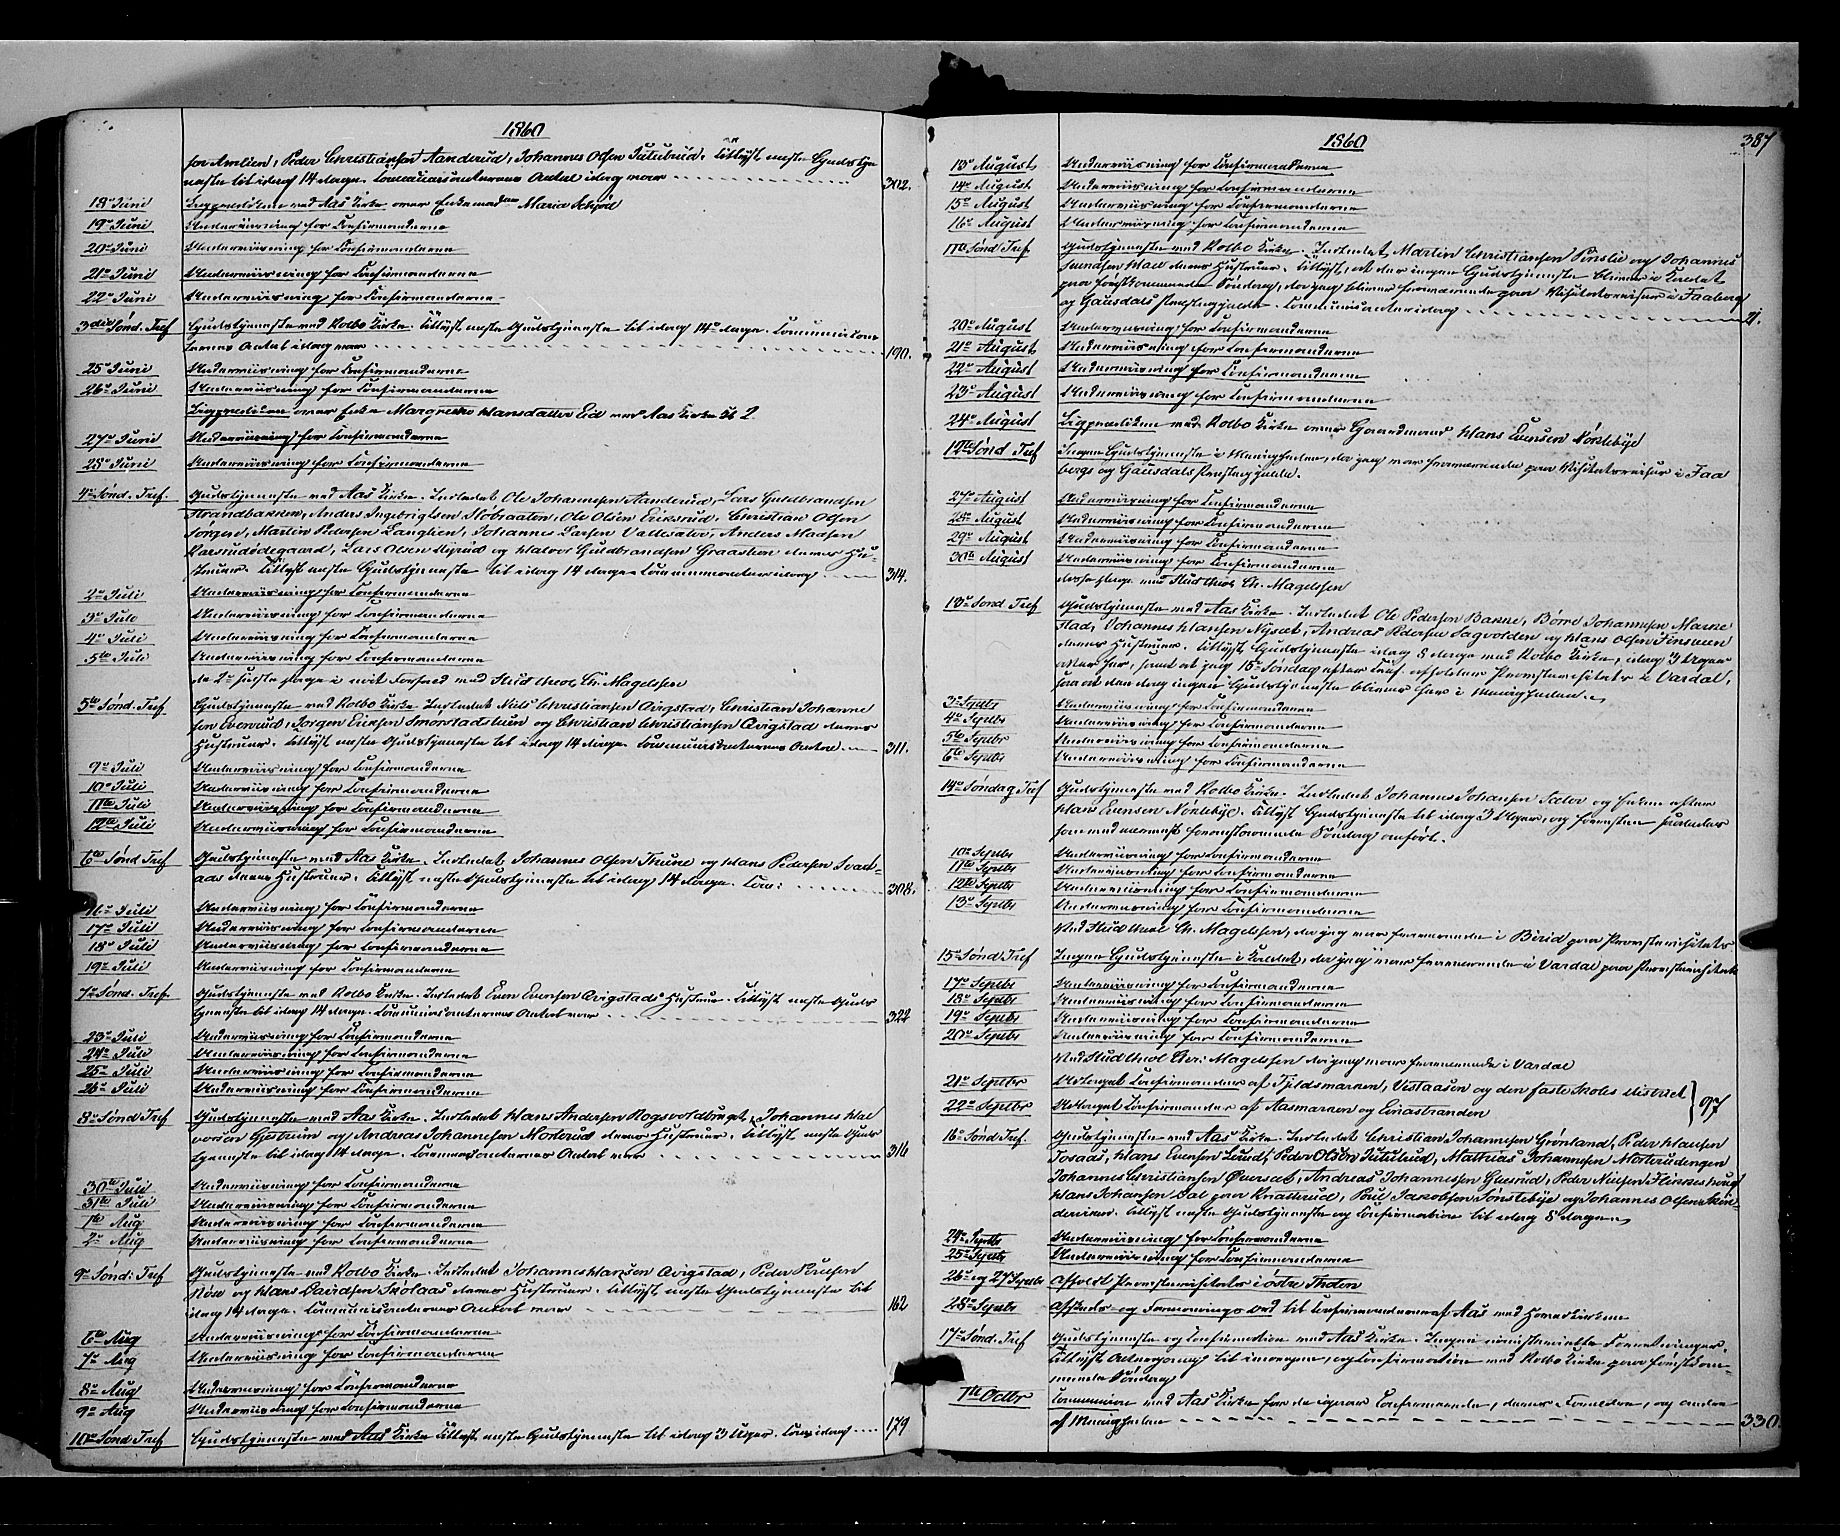 1860
sen Amlien, Peder Christiansen Aanderud, Johannes Olsen Tutubrud. Tillyst næste Gudstje
neste til idag 14 dage. Communicanternes Antal idag var 302.
18de Juni Ligprædiken ved Aas Kirke over Enkemadme Maria Schjøll
19de Juni Underviisning for Confirmanderne
20de Juni Underviisning for Confirmanderne
21de Juni Underviisning for Confirmanderne
22de Juni Underviisning for Confirmanderne
3die Sønd. Tref Gudstjeneste ved Kolbo Kirke. Tillyst næste Gudstjeneste til idag 14 dage. Communican
ternes Antal idag var 190.
25de Juni Underviisning for Confirmanderne
26de Juni Underviisning for Confirmanderne
Ligprædiken over Enke Margrethe Hansdatter Eid ved Aas Kirke Kl 2
27de Juni Underviisning for Confirmanderne
28de Juni Underviisning for Confirmanderne
4de Sønd. Tref. Gudstjeneste ved Aas Kirke. Indledet Ole Johannesen Aanderud, Lars Guldbrandsen
Strandbakken, Anders Ingebrigtsen Slobraaten, Ole Olsen Eriksrud, Christian Olsen
Sørgen, Martin Pedersen Langlien, Johannes Larsen, Anders Madsen
Karsrudødegaard, Lars Olsen og Halvor Guldbrandsen Graastien deres Hu-
struer. Tillyst næste Gudstjeneste til idag 14 dage. Communicanter idag 314.
2de Juli Underviisning for Confirmanderne
3de Juli Underviisning for Confirmanderne
4de Juli Underviisning for Confirmanderne
5te Juli Underviisning for Confirmanderne
de 2de sidste dage i mit Forfald ved Stud theol Ch. Magelssen
5te Sønd. Tref Gudstjeneste ved Kolbo Kirke. Indledet Nils Christiansen Qvigstad, Christian Johanne
sen Evenrud, Jørgen Eriksen Smørstadstuen og Christian Christiansen Qvigstad deres
Hustruer. Tillyst næste Gudstjeneste til idag 14 dage. Communicanternes Antal 311.
9de Juli Underviisning for Confirmanderne
10de Juli Underviisning for Confirmanderne
11te Juli Underviisning for Confirmanderne
12te Juli Underviisning for Confirmanderne
6te Sønd Tref Gudstjeneste ved Aas Kirke. Indledet Johannes Olsen Thune og Hans Pedersen
deres Hustruer. Tillyst næste Gudstjeneste til idag 14 dage. Com: 308.
16de Juli Underviisning for Confirmanderne
17de Juli Underviisning for Confirmanderne
18de Juli Underviisning for Confirmanderne
19de Juli Underviisning for Confirmanderne
7de Sønd. Tref. Gudstjeneste ved Kolbo Kirke. Indledet Even Evensen Qvigstads Hustrue. Tillyst næste Guds
tjeneste til idag 14 dage. Communicanternes Antal var 322
23de Juli Underviisning for Confirmanderne
24de Juli Underviisning for Confirmanderne
25de Juli Underviisning for Confirmanderne
26de Juli Underviisning for Confirmanderne
8de Sønd Tref Gudstjeneste ved Aas Kirke. Indledet Hans Andersen Rogsvoldbraget, Johannes Hal
vorsen Gjestrum og Andreas Johannesen Morterud deres Hustruer. Tillyst næste Guds
tjeneste til idag 14 dage. Communicanternes Antal var 316
30te Juli Underviisning for Confirmanderne
31te Juli Underviisning for Confirmanderne
1te Aug Underviisning for Confirmanderne
2de Aug Underviisning for Confirmanderne
9de Sønd: Tref Gudstjeneste ved Kolbo Kirke. Indledet Johannes Hansen Qvigstad, Peder
og Hans Davidsen Skolaas deres Hustruer. Tillyst næste Gudstjeneste til
idag 14 dage. Communicanternes Antal var 162
6te Aug Underviisning for Confirmanderne
7de Aug Underviisning for Confirmanderne
8de Aug Underviisning for Confirmanderne
9de Aug Underviisning for Confirmanderne
10de Sønd Tref Gudstjeneste ved Aas Kirke Tillyst næste Gudstjeneste til idag 3 Uger. Com idag 179
1860
387
13de August Underviisning for Confirmanderne
14de August Underviisning for Confirmanderne
15de August Underviisning for Confirmanderne
16de August Underviisning for Confirmanderne
11te Sønd Tref. Gudstjeneste ved Kolbo Kirke. Indledet Martin Christiansen Finslie og Johannes
deres Hustruer. Tillyst, at der ingen Gudstjeneste bliver i Kaldet
paa førstkommende Søndag, da jeg bliver fraværende paa Visitatsreiser i Faaberg
og Gausdals Præstegjelde. Communicanter idag 21.
20de August Underviisning for Confirmanderne
21de August Underviisning for Confirmanderne
22de August Underviisning for Confirmanderne
23de August Underviisning for Confirmanderne
24de August Ligprædiken ved Kolbo Kirke over Gaardmand Hans Evensen Nørdebye
12te Sønd Tref Ingen Gudstjeneste i Menigheden, da jeg var fraværende paa Visitatsreiser i Faa
bergs og Gausdals Præstegjelde.
27de August Underviisning for Confirmanderne
28de August Underviisning for Confirmanderne
29de August Underviisning for Confirmanderne
30te August Underviisning for Confirmanderne
disse dage ved Stud theol Ch. Magelssen
13de Sønd Tref Gudstjeneste ved Aas Kirke. Indledet Ole Pedersen Banne, Børre Johannesen Marne
stad, Johannes Hansen Nysæt, Andreas Pedersen Sagvolden og Hans Olsen Finsveen
deres Hustruer. Tillyst Gudstjeneste idag 8 dage ved Kolbo Kirke, idag 3 Uger
atter her, samt at jeg 15de Søndag efter Tref. afholder Provstevisitats i Vardal,
saa at den dag ingen Gudstjeneste bliver her i Menigheden.
3de Septbr Underviisning for Confirmanderne
4de Septbr Underviisning for Confirmanderne
5te Septbr Underviisning for Confirmanderne
6te Septbr Underviisning for Confirmanderne
14de Søndag Tref Gudstjeneste ved Kolbo Kirke. Indledet Johannes Johansen Sælor og Enken efter
Hans Evensen Nørdebye. Tillyst Gudstjeneste til idag 3 Uger, og forresten saaledes
som ved nærmest foranstaaende Søndag anført.
10de Septbr Underviisning for Confirmanderne
11te Septbr Underviisning for Confirmanderne
12te Septbr Underviisning for Confirmanderne
13de Septbr Underviisning for Confirmanderne
Ved Stud theol Ch. Magelssen, da jeg var fraværende i Birid paa Provstevisitats
15de Sønd Tref Ingen Gudstjeneste i Kaldet, da jeg var fraværende i Vardal paa Provstevisitats
17de Septbr Underviisning for Confirmanderne
18de Septbr Underviisning for Confirmanderne
19de Septbr Underviisning for Confirmanderne
20de Septbr Underviisning for Confirmanderne
Ved Stud theol Chr: Magelssen da jeg var fraværende i Vardal
21de Septbr Udtaget Confirmander af Fjeldsmarken, Vestaasen og den faste Skoles district
22de Septbr Udtaget Confirmander af Aasmarken og Einastranden } 97
16de Sønd Tref. Gudstjeneste ved Aas Kirke. Indledet Christian Johannesen Grønland, Peder Hansen
Tosaas, Hans Evensen Lund, Peder Olsen Tutubrud, Mathias Johannesen Morterudengen
Johannes Christiansen Øverset, Andreas Johannesen Gaarud, Peder Nilsen Slinkeshaug
Hans Johansen Dal paa Knatterud, Poul Jacobsen Sonstebye og Johannes Olsen
Tillyst næste Gudstjeneste og Confirmation til idag 8 dage.
24de Septbr Underviisning for Confirmanderne
25de Septbr Underviisning for Confirmanderne
26de og 27de Septbr Afholdt Provstevisitats i østre Thoten
28de Septbr Afskeds- og Formanings Ord til Confirmanderne af Aas ved Hovedkirken
17de Sønd. Tref Gudstjeneste og Confirmation ved Aas Kirke. Ingen ministerielle Forretninger.
Tillyst Altergang til imorgen, og Confirmation ved Kolbo Kirke paa førstkom-
mende Søndag
1ste Octbr Communion ved Aas Kirke for de igaar Confirmerede, deres Forældre, og andre
af Menigheden 330